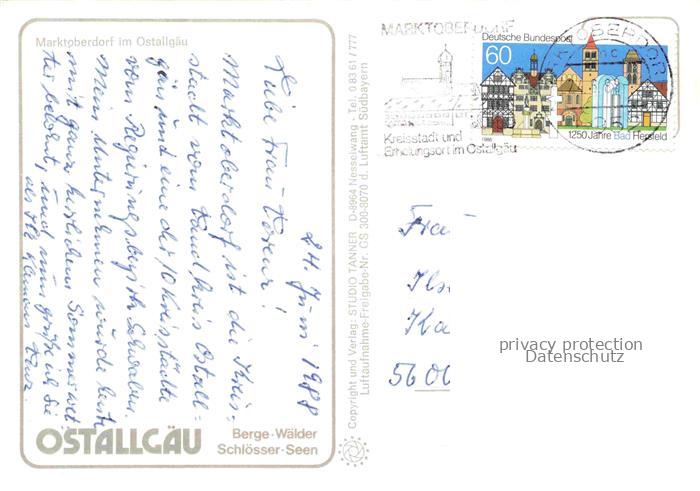 Marktoberdorf im Ostallgäu
24. Juni 1988
Liebe Frau
Marktoberdorf ist die Kreis-
stadt vom Landkreis Ostall=
gäu und eine der 10 Kreisstädte
vom Regierungsbezirk Schwaben.
Mein Unternehmen wurde heute
mit ganz herrlichem Sommerwet-
ter belohnt, und nun grüße ich Sie
als Ihr
OSTALLGÄU
Berge·Wälder
Schlösser·Seen
Copyright und Verlag: STUDIO TANNER D-8964 Nesselwang - Tel. 0 83 61 / 777
Luftaufnahme-Freigabe-Nr. GS 300-8070 d. Luftamt Südbayern
MARKTOBERDORF
Kreisstadt und
Erholungsort im Ostallgäu
Deutsche Bundespost
60
1250 Jahre Bad Hersfeld
Ka
5600
privacy protection
Datenschutz